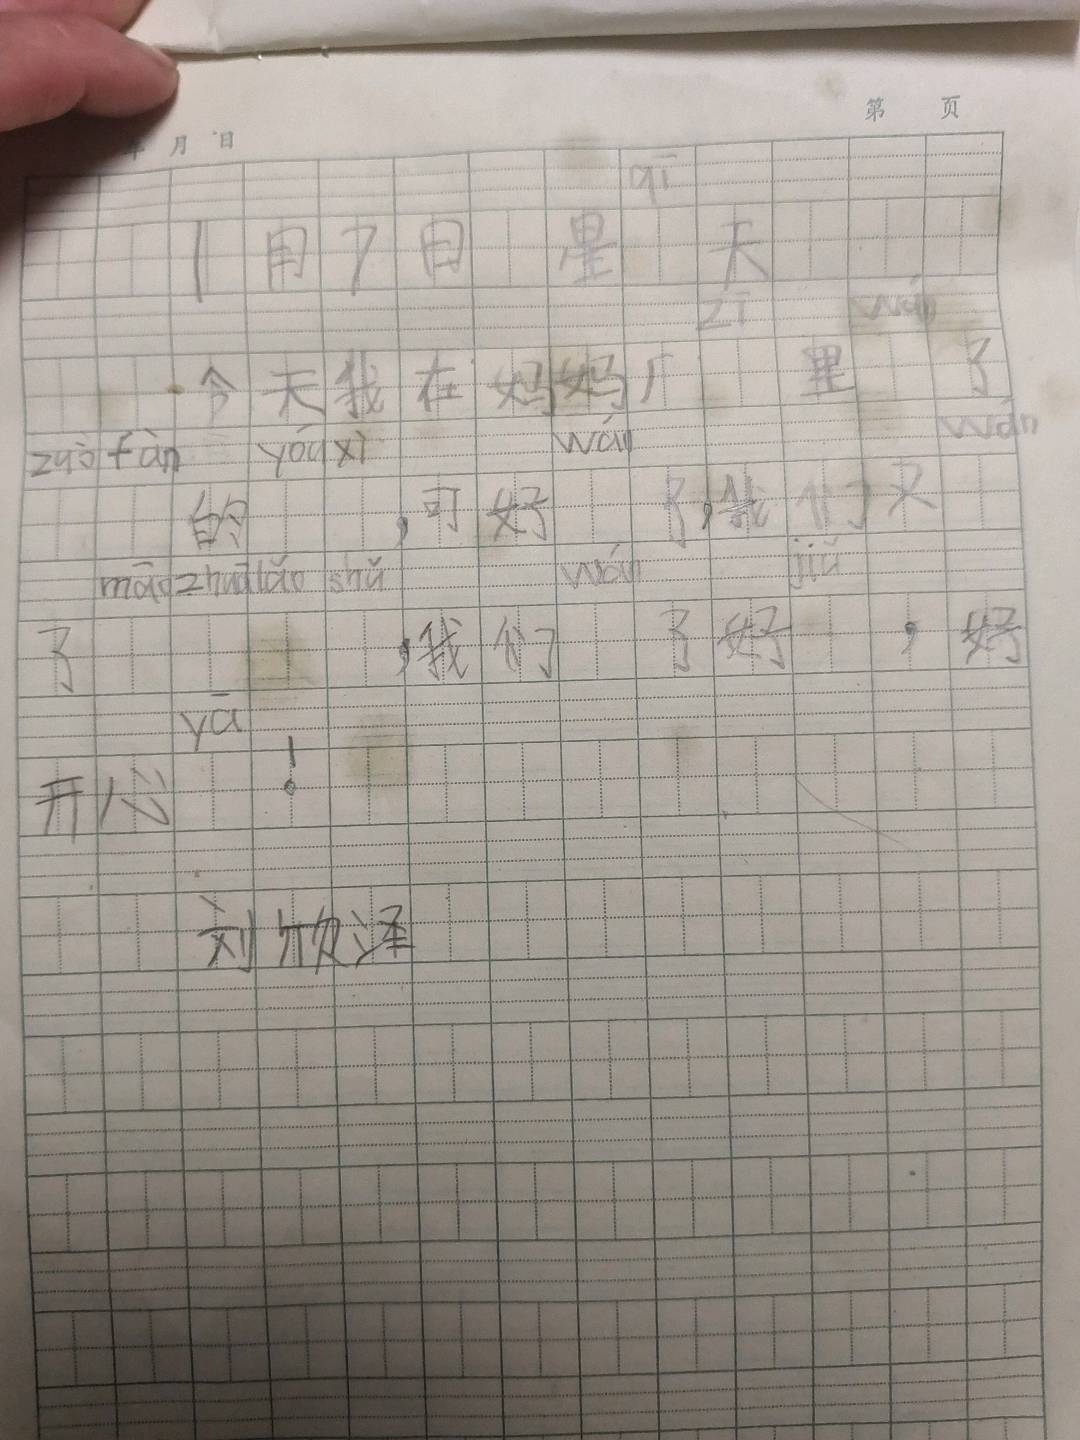 年 月 日
第 页
qī
1月7日 星 天
zī wán
今天我在妈妈厂 里 了
zuò fàn yóu xì wán wán
的 ,可好 了,我们又
māo zhuā lǎo shǔ wán jiǔ
了 ,我们 了好 ,好
yā
开心 !
刘欣泽